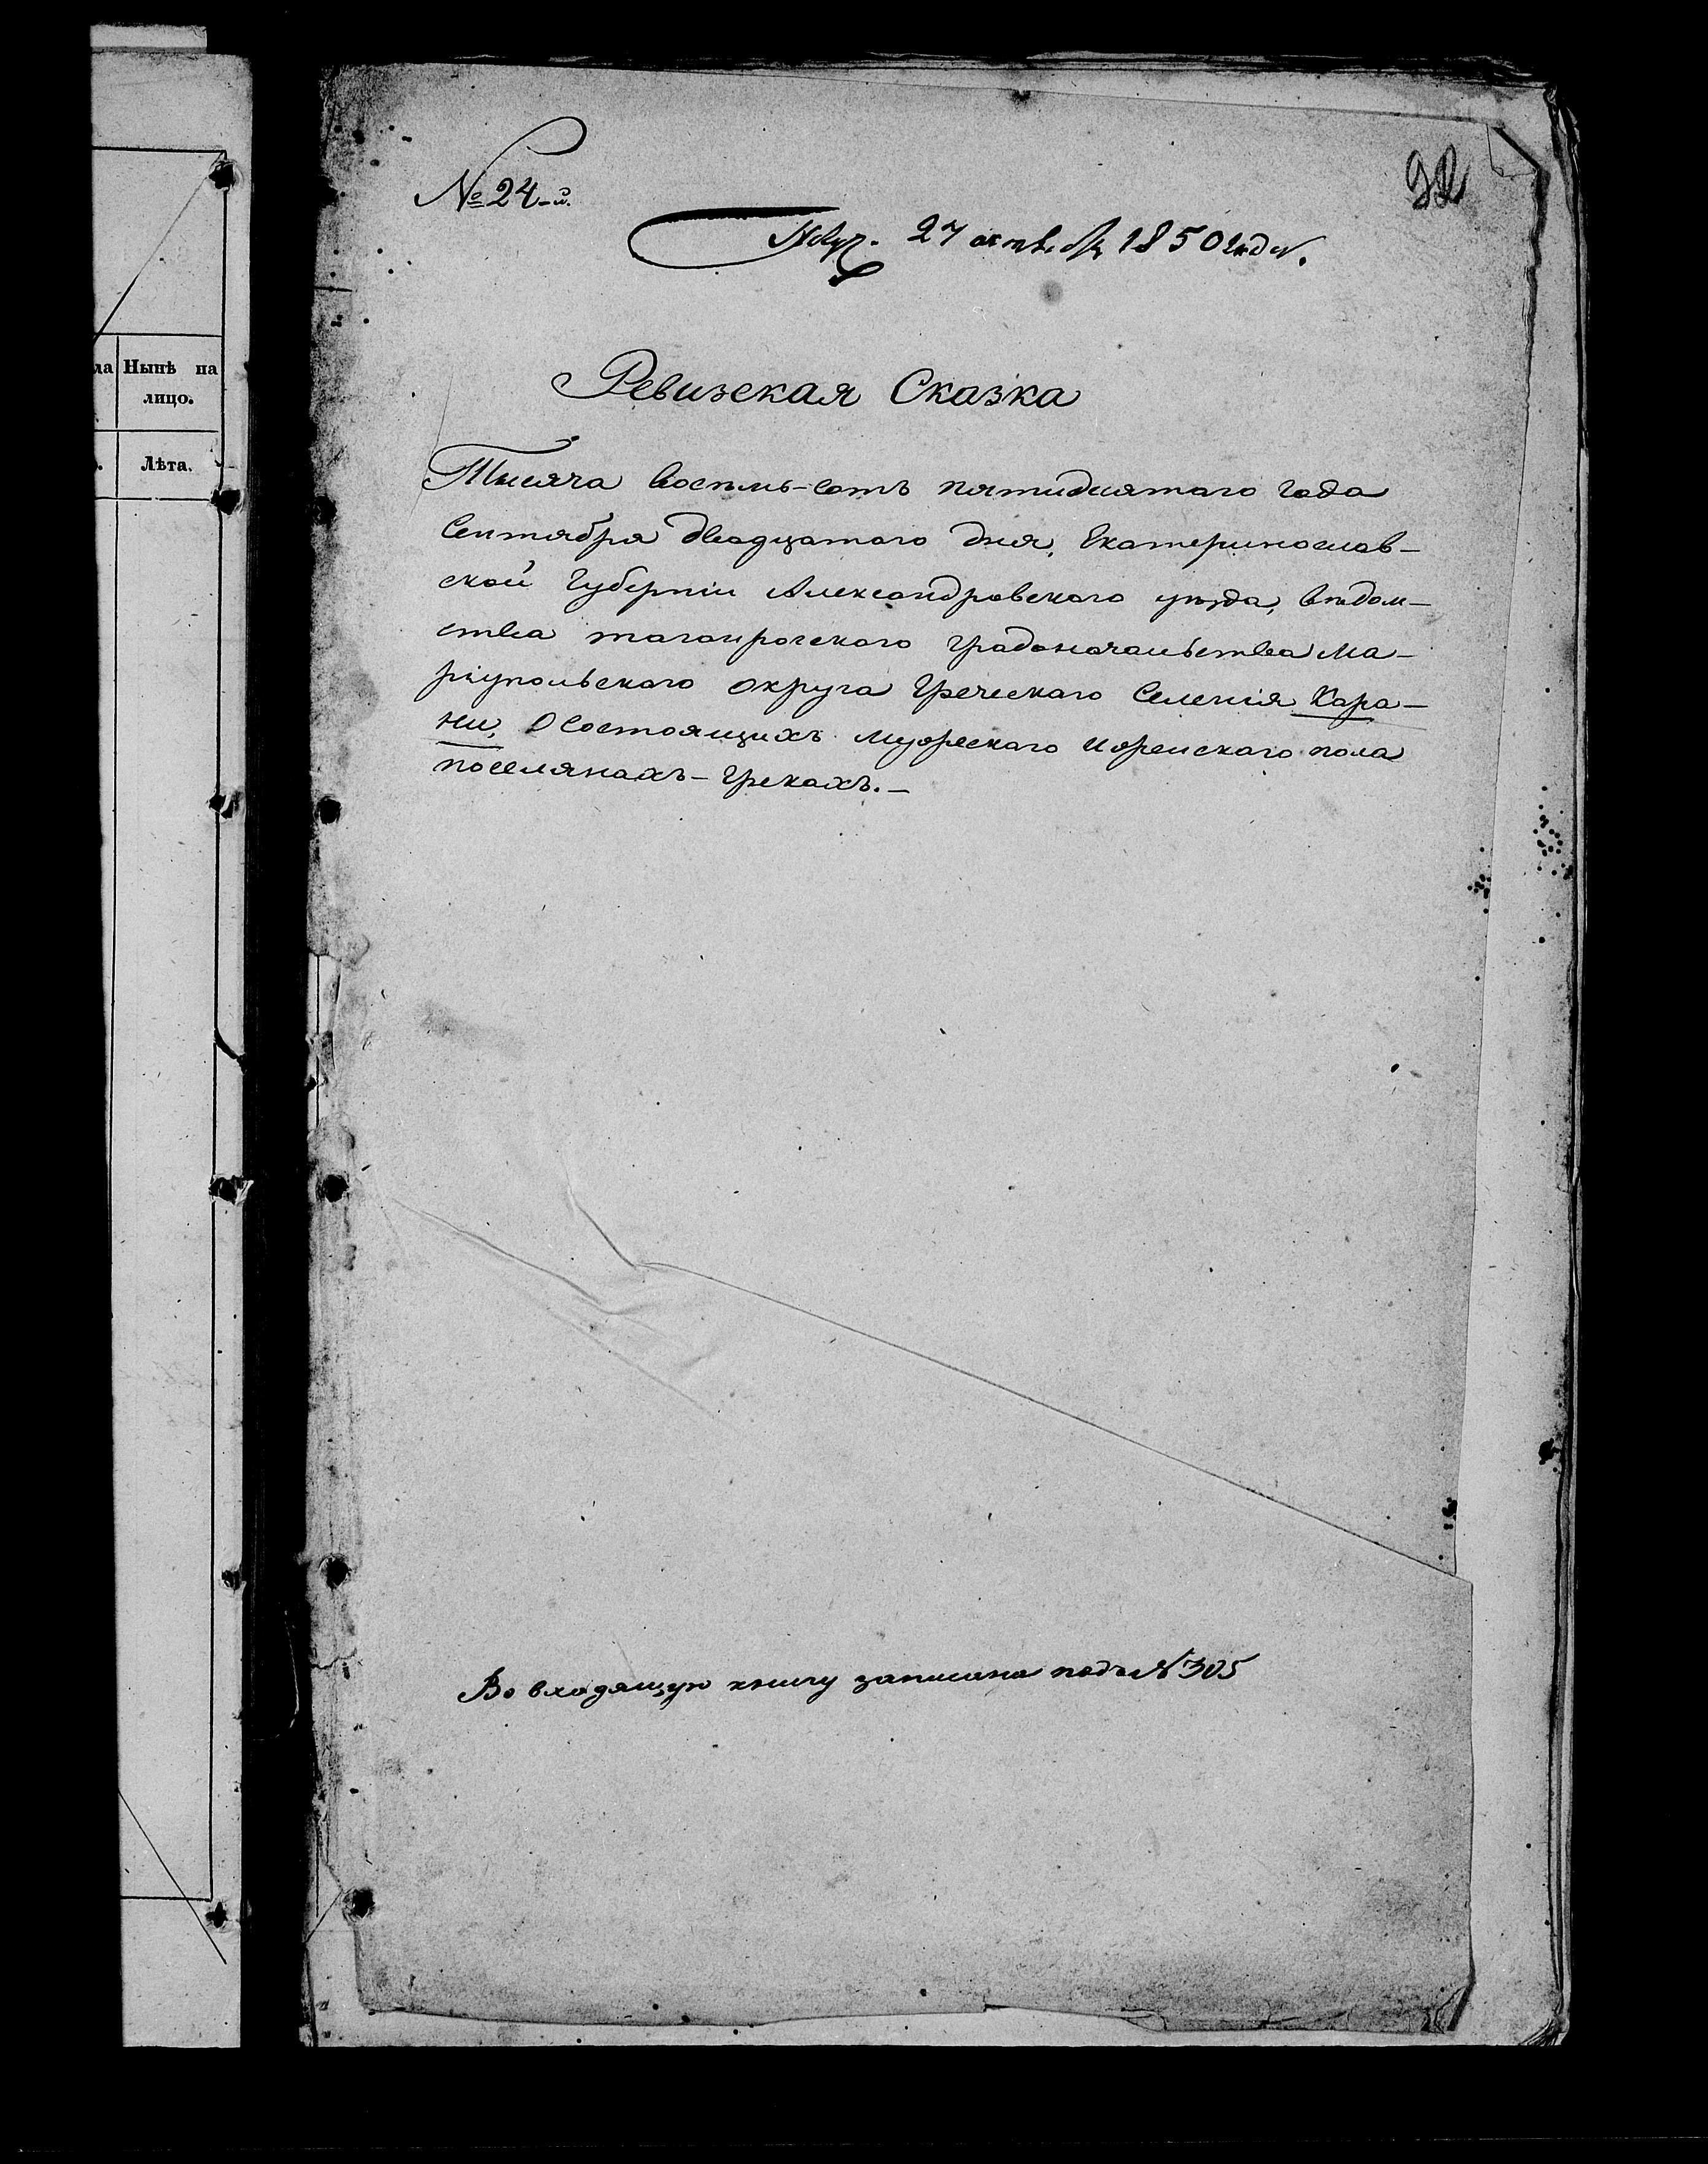 ла Нынѣ на
лицо.
Лѣта.
№ 24-й.
Получ. 27 октября 1850 года.
Ревизская Сказка
Тысяча восемь-сотъ пятидесятаго года
Сентября двадцатаго дня, Екатеринослав-
ской Губерніи Александровскаго уѣзда, вѣдом-
ства таганрогскаго градоначальства Ма-
ріупольскаго округа Греческаго Селенія Кара-
ни, О Состоящихъ мужескаго и женскаго пола
поселянахъ-Грекахъ.-
Во входящую книгу записана подъ № 305